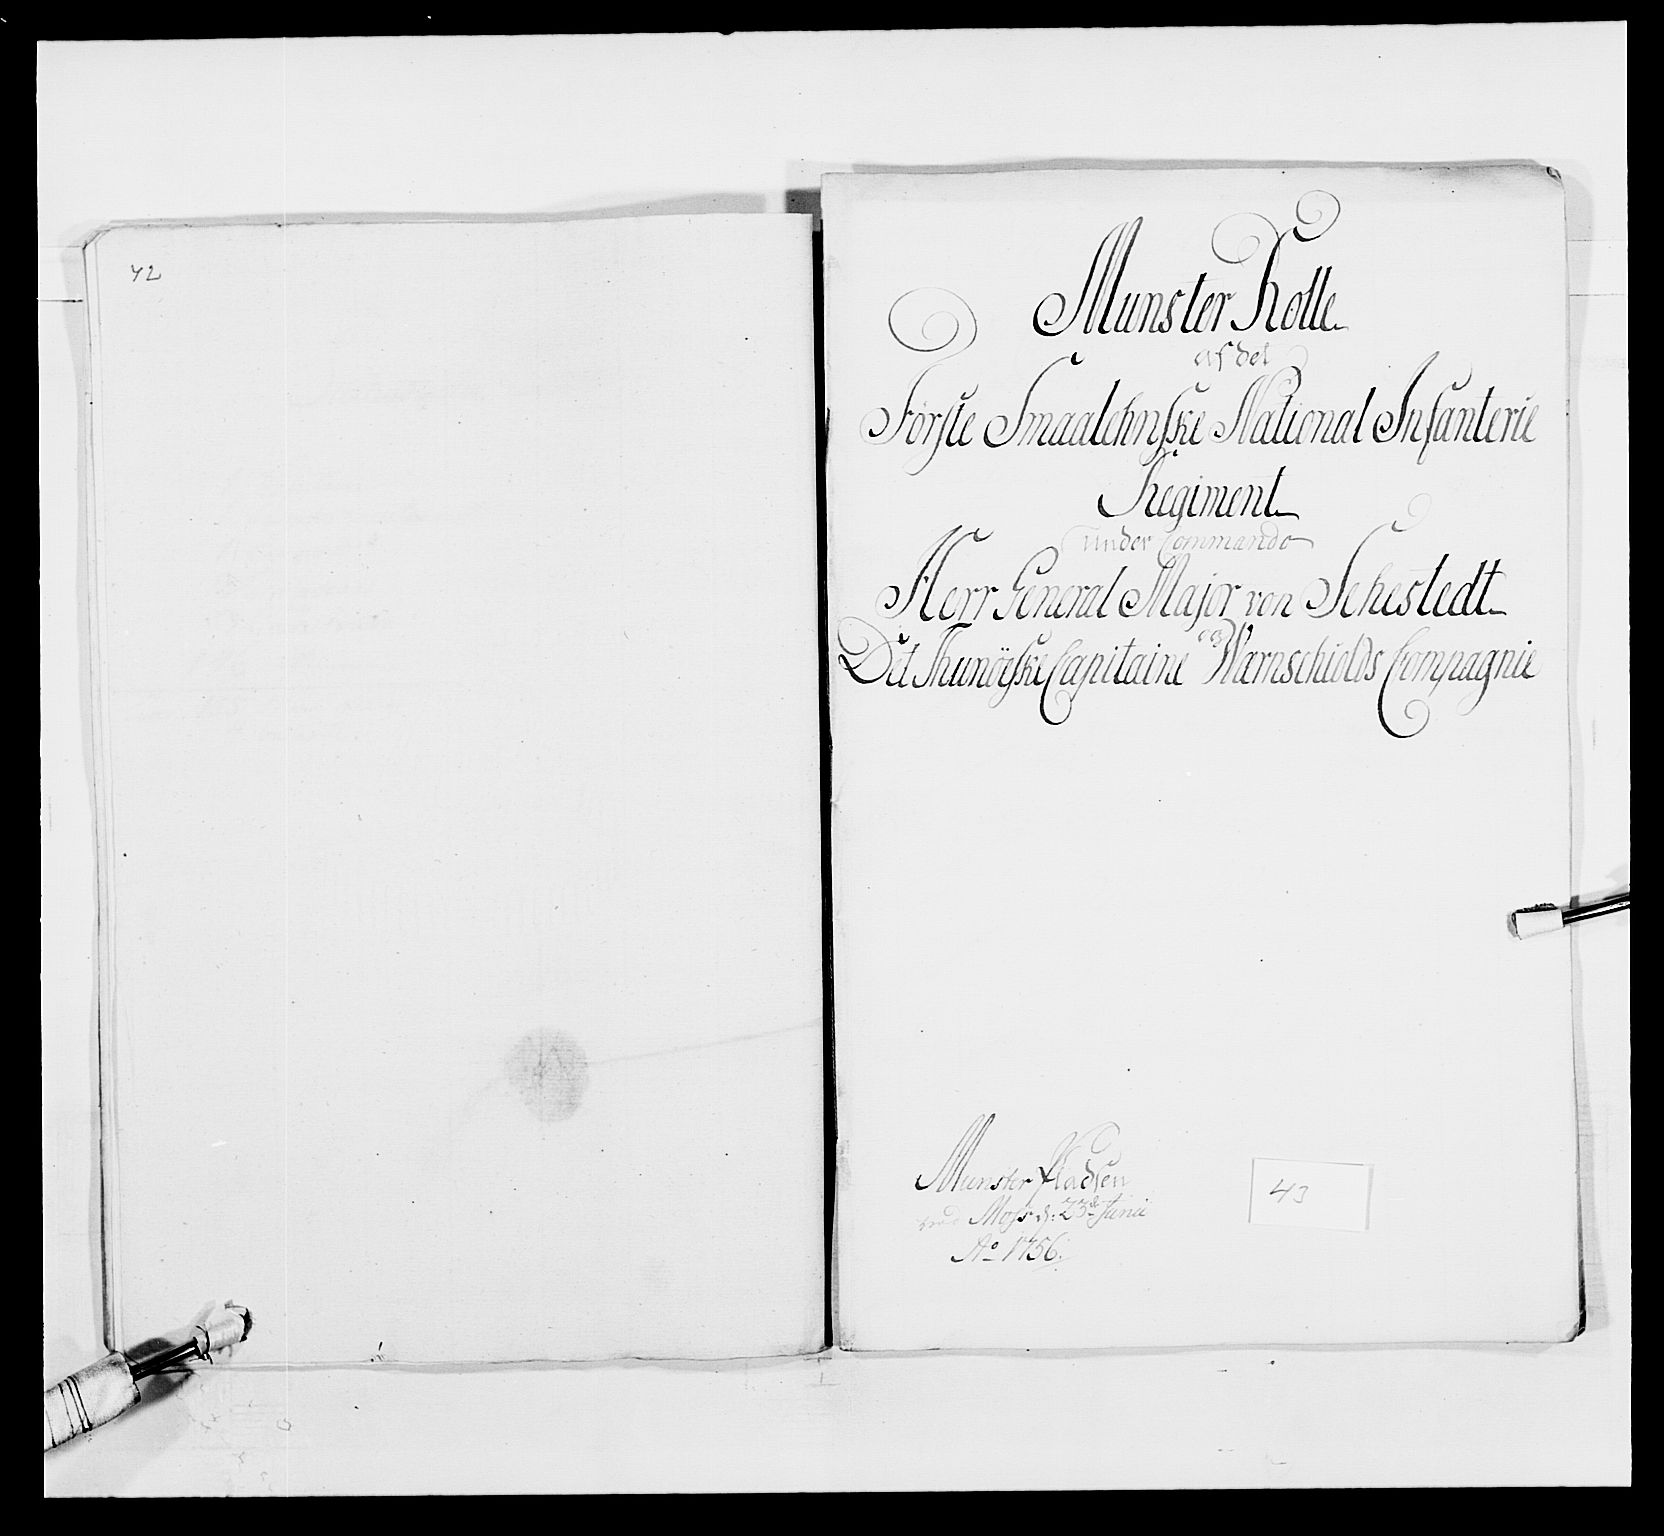 42
Munster Rolle
af det
Første Smaalehnske National Infanterie
Regiment
under Commando
Herr General Major von Sehestedt
Det Thunöeske Capitaine Wærnschiolds Compagnie
Munster Pladsen
ved Moss d: 23de Junii
Ao 1756.
43